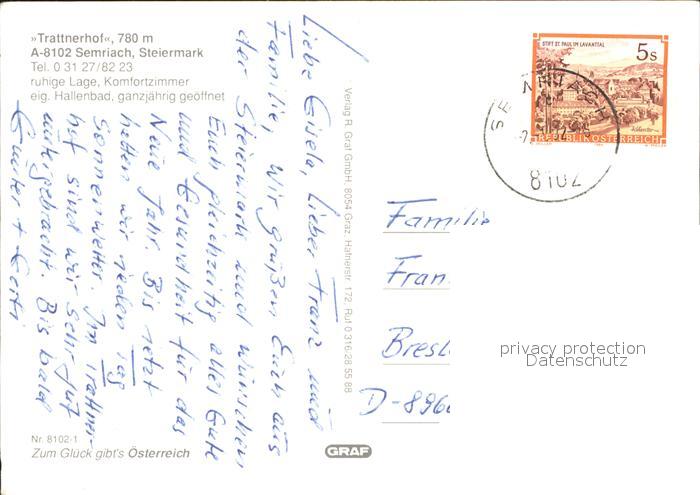 »Trattnerhof«, 780 m
A-8102 Semriach, Steiermark
Tel. 0 31 27/82 23
ruhige Lage, Komfortzimmer
eig. Hallenbad, ganzjährig geöffnet
Liebe Gisela, lieber Franz und
Familie, Wir grüßen Euch aus
der Steiermark und wünschen
Euch gleichzeitig alles Gute
und Gesundheit für das
Neue Jahr. Bis jetzt
hatten wir jeden Tag
Sonnenwetter. Im Trattner-
hof sind wir sehr gut
untergebracht. Bis bald
Günter + Gerti
Verlag R. Graf GmbH, 8054 Graz, Hafnerstr. 172, Ruf 0 316-28 55 88
STIFT ST. PAUL IM LAVANTTAL
5s
REPUBLIK ÖSTERREICH
SEMRIACH
8102
Familie
Fran
Bresl
D-8960
privacy protection
Datenschutz
Nr. 8102-1
Zum Glück gibt's Österreich
GRAF